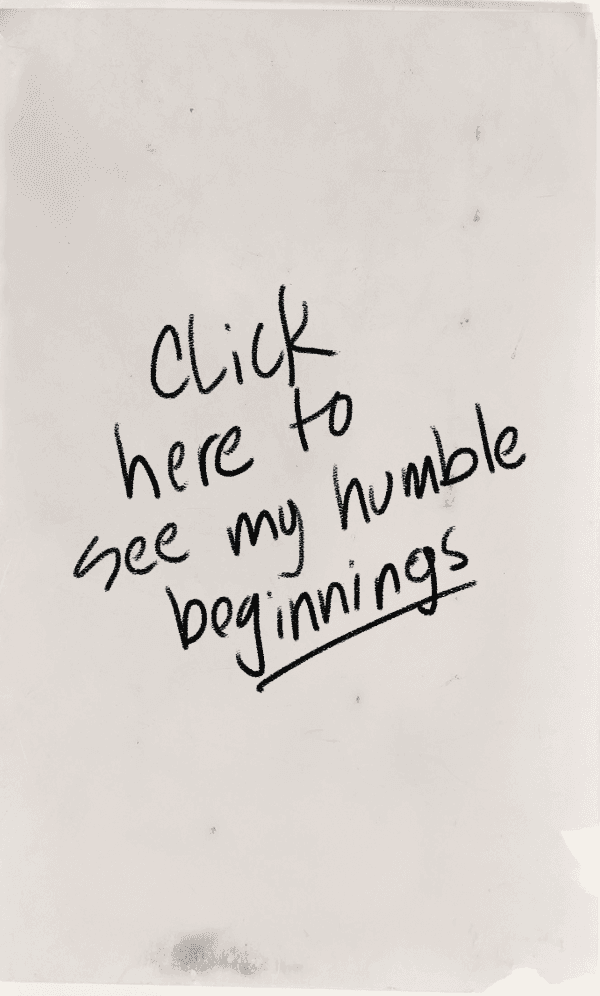 Click
here to
see my humble
beginnings